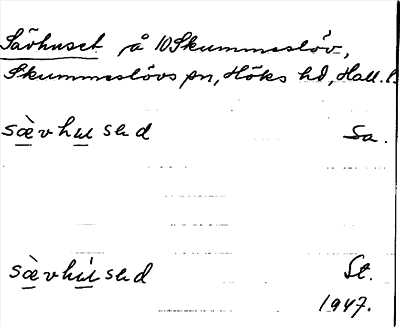 Sävhuset å 10 Skummeslöv,
Skummeslövs sn, Höks hd, Hall. l.
sæ̀vhu̱səd Sa.
sæ̀vhú̱səd St.
1947.